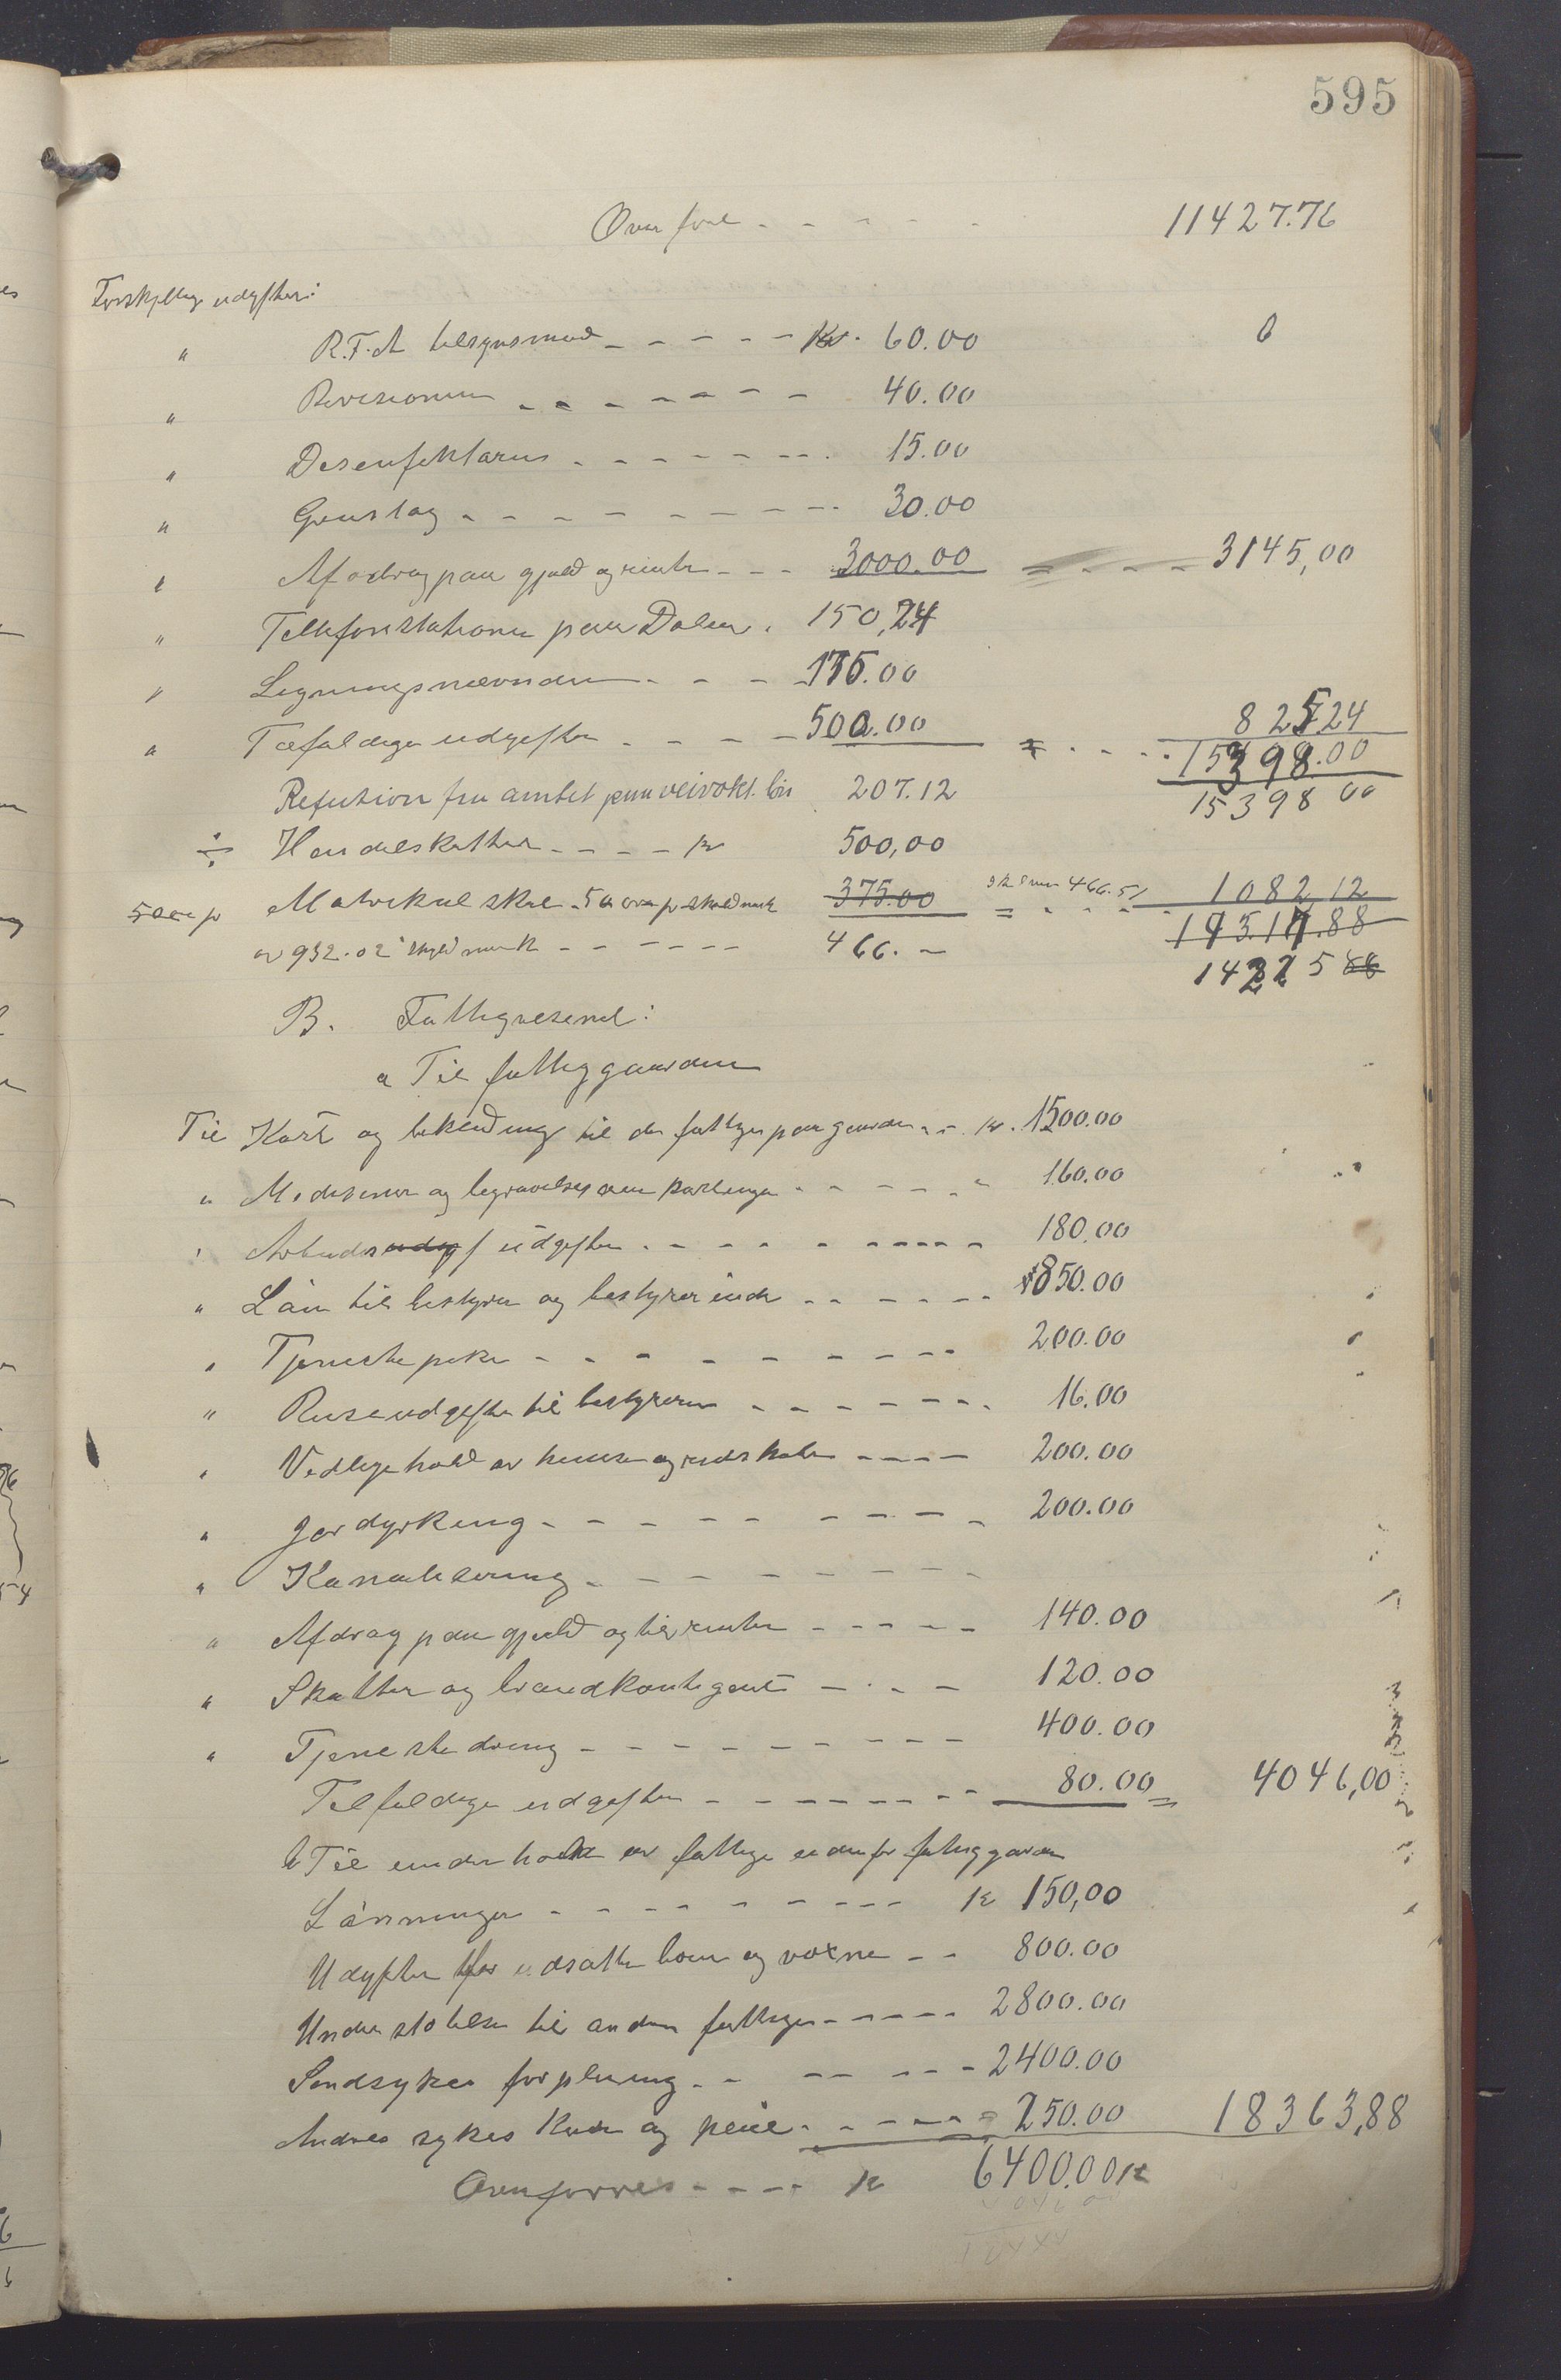 595
Overført - - - - - 11427.76
Forskjellige udgifter:
" R.F. A tilsynsmand - - - - - Kr. 60.00 0
" Revisionen - - - - - - - 40.00
" Desenfektørens - - - - - - - 15.00
" Grustag - - - - - - - - - 30.00
" Afdrag paa gjæld og renter - - - 3000.00 = - - - - 3145,00
" Tellefonstationen paa Dalen . 150,24
" Ligningsnævnden - - - - 175.00
" Tilfældige udgifter - - - - 500.00 = - - - - 825.24
15398.00
Refusion fra amtet paa veivokt. løn 207.12 15398 00
÷ Handelskatter - - - - kr 500,00
50 øre pr Matrikul skat - 50 øre pr skyldmark 375.00 466.51 = - - - - 1082,12
av 932.02 skyldmark - - - - - - 466. - 14317.88
1422 5 88
B. Fattigvesenet:
a Til fattiggaarden
Til Kost og beklædning til de fattige paa gaarden - - kr. 1500.00
" Medisiner og begravelse - - - - - - 160.00
" Arbeidsudgf udgifter - - - - - - - - - 180.00
" Løn til bestyrer og bestyrerinde - - - - - - 850.00
" Tjenestepike - - - - - - - - - - 200.00
" Reiseudgifter til bestyreren - - - - - - - 16.00
" Vedligehold av huuse og redskaber - - - - 200.00
" Jordyrking - - - - - - - - - - 200.00
" Kanalisering - - - - - - - - -
" Afdrag paa gjæld og til renter - - - - - 140.00
" Skatter og brandkontigent - - - - 120.00
" Tjenestedreng - - - - - - - - - 400.00
Tilfeldige udgifter - - - - - - - - 80.00 = 4046,00
b Til underhold av fattige udenfor fattiggaarden
Lønninger - - - - - - - - - kr 150,00
Udgifter for udsatte børn og voxne - - 800.00
Understøttelse til anden fattige - - - - - 2800.00
Sindsykes forpleining - - - - - - - 2400.00
Andres sykes kur og pleie - - - - - - 250.00 18363,88
Overførres - - - - kr 6400.00 kr